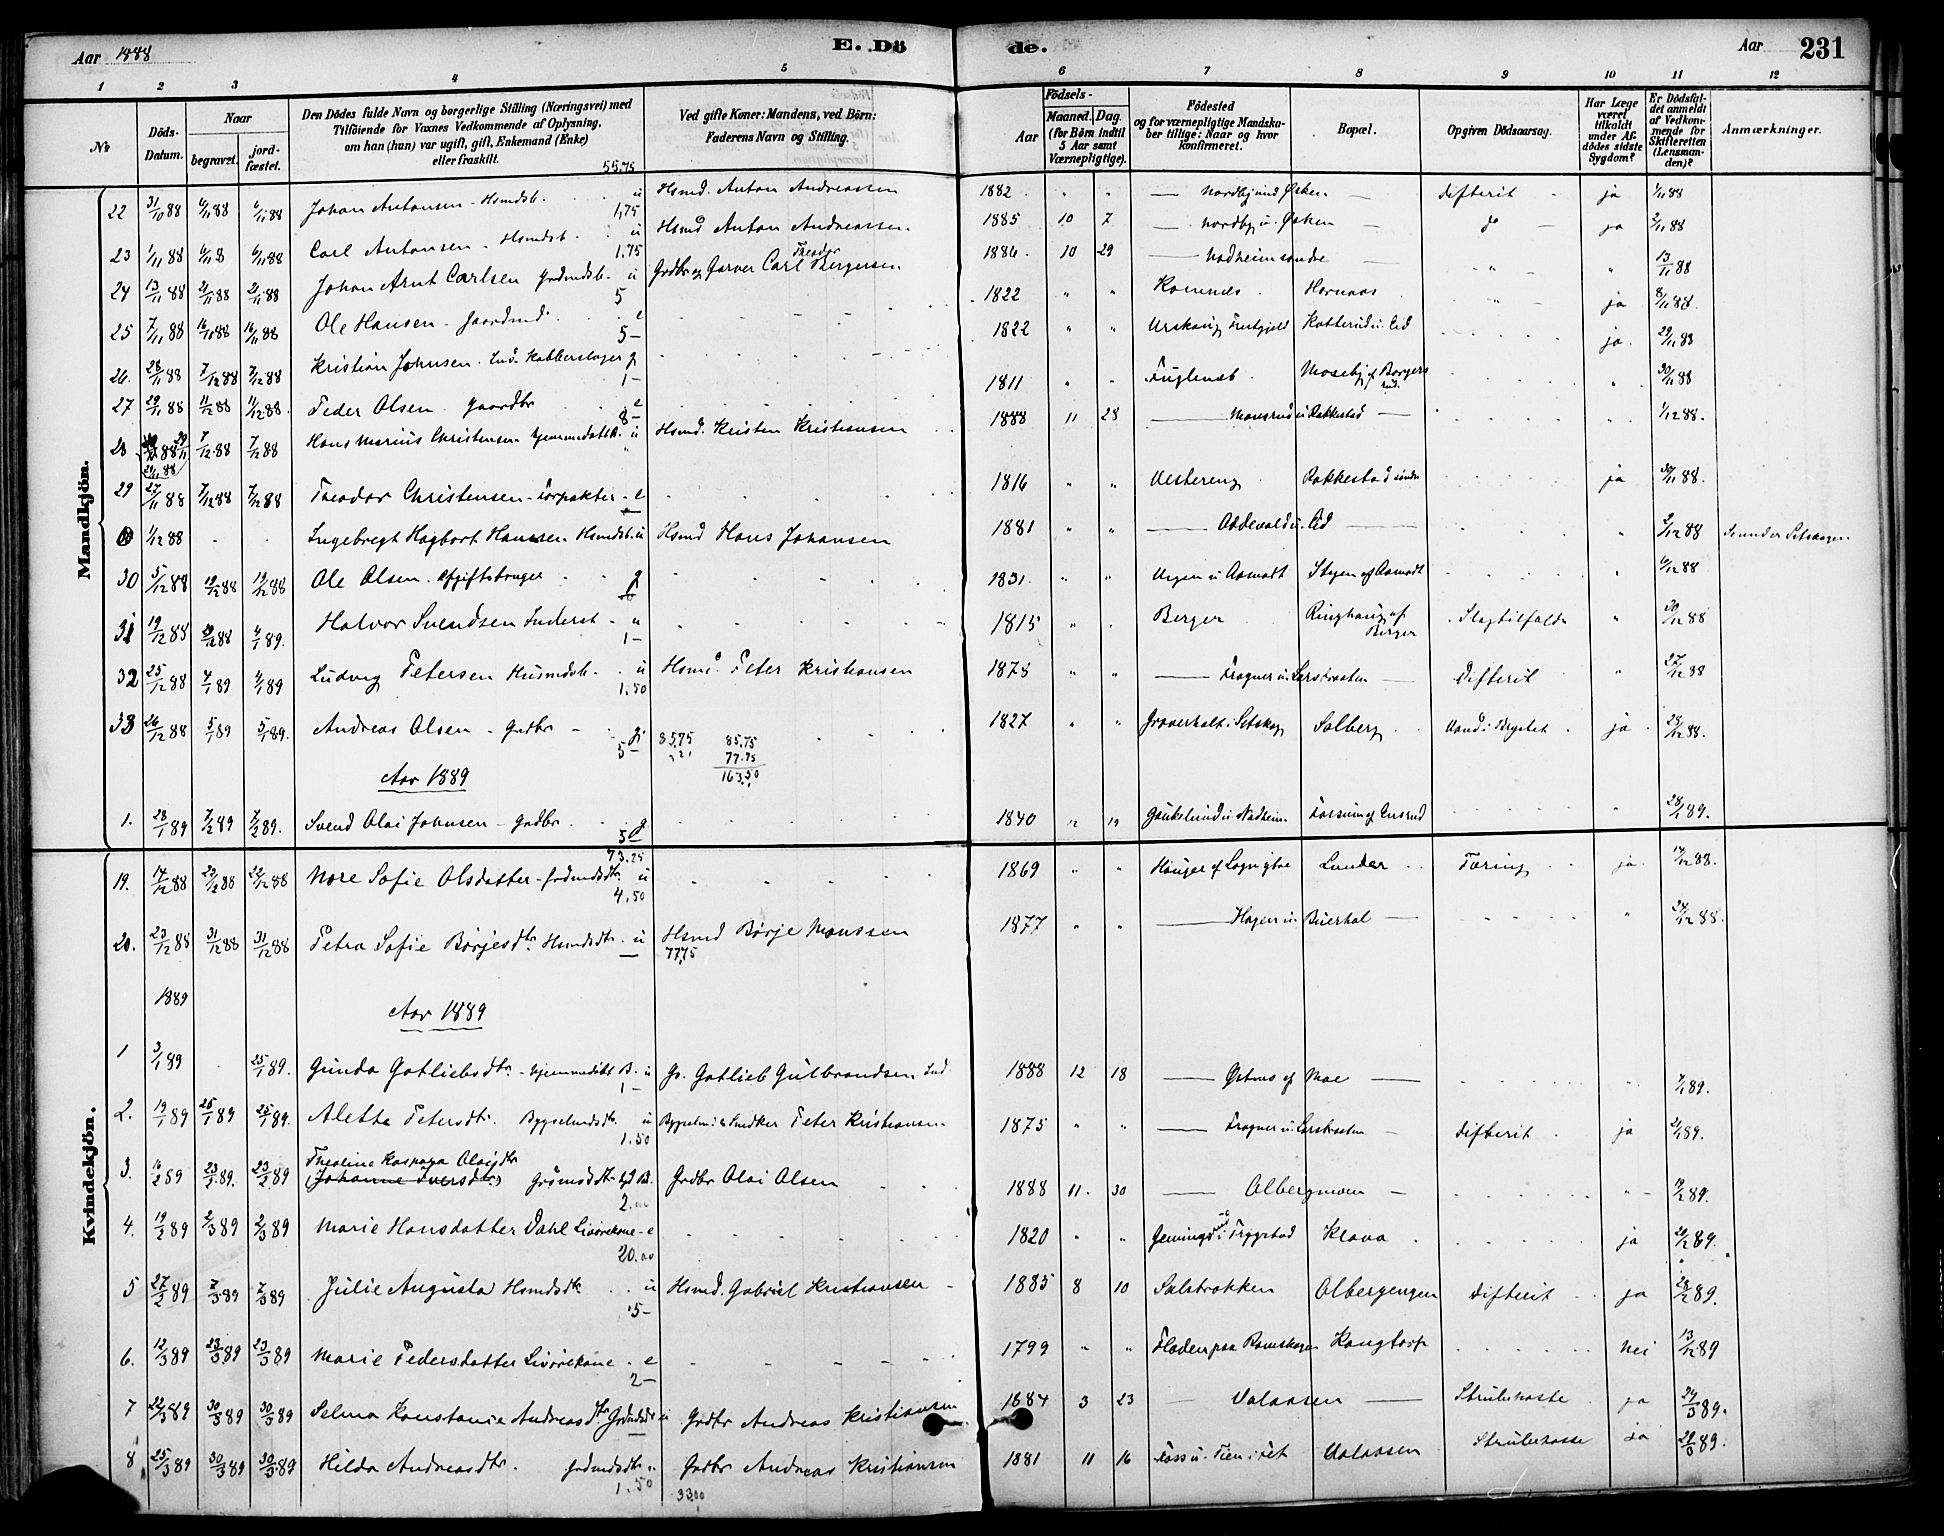 Aar 1888 E. Dö de. Aar 231
1 2 3 4 5 6 7 8 9 10 11 12
No
Döds-Datum.
Naar
begravet. jordfæstet.
Den Dödes fulde Navn og borgerlige Stilling (Næringsvei) med
Tilföiende for Voxnes Vedkommende af Oplysning,
om han (hun) var ugift, gift, Enkemand (Enke)
eller fraskilt.
55.75
Ved gifte Koner: Mandens, ved Börn:
Faderens Navn og Stilling.
Födsels-
Aar
Maaned. Dag.
(for Börn indtil
5 Aar samt
Værnepligtige).
Födested
og for værnepligtige Mandska-
ber tillige: Naar og hvor
konfirmeret.
Bopæl.
Opgiven Dödsaarsag.
Har Læge
været
tilkaldt
under Af-
dödes sidste
Sygdom?
Er Dödsfal-
det anmeldt
af Vedkom-
mende for
Skifteretten
(Lensman-
den)?
Anmærkninger.
Mandkjön.
22 31/10 88 6/11 88 6/11 88 Johan Antonsen - Hsmdsb. u 1,75 Hsmd. Anton Andreassen 1882 " " Nordby und. Øsken difterit ja 1/11 88
23 1/11 88 6/11 8 6/11 88 Carl Antonsen - Hsmdsb. u 1.75 Hsmd Anton Andreassen 1885 10 7 Nordby u. Øsken do ja 2/11 88
24 13/11 88 21/11 88 21/11 88 Johan Arnt Carlsen Grdmdsb. u 5 Grdbr og Garver Carl Theodor Bergersen 1886 10 29 Nadheim søndre " " 13/11 88
25 7/11 88 16/11 88 16/11 88 Ole Hansen - Gaardmd e 5- 1822 " " Kommes Hornaas " ja 8/11 88
26. 28/11 88 7/12 88 7/12 88 Kristian Johnsen. Ind. Kobberslager g 1- 1822 " " Urskoug Prestgjeld Kotterud u. Eid ja. 29/11 88
27 29/11 88 11/12 88 11/12 88. Peder Olsen Gaardbr e 8- 1811 " " Fuglenæb. Moseby af Borgersrud. " 30/11 88
28 29/11 88 7/12 88 7/12 88 Hans Marius Christensen hjemmedøbt B. u Hsmd. Kristen Kristiansen 1888 11 28 Monsrud u Rakkestad " 1/12 88.
29 27/11 88 7/12 88 7/12 88 Theodor Christensen - Forpakter - e 1816 " " Vestereng Rakkestad søndre ja 30/11 88.
1/12 88 Ingebregt Hagbart Hansen Hsmdsb. u Hsmd Hans Johansen 1881 " " Oddevald u. Eid " 3/12 88 Se under Setskogen
30 5/12 88 19/12 88 19/12 88 Ole Olsen. Afgiftsbruger g 1831. " " Vegen u Aamodt Stegen af Aamodt 6/12 88
31 19/12 88 29/12 88 4/1 89. Halvor Svendsen Inderst - u 1- 1815 " " Berger Ringhaug af Berger Slagtilfælde " 20/12 88
32 25/12 88 4/1 89 4/1 89 Ludvig Petersen Husmdsb. u 1.50 Hsmd. Peter Kristiansen 1878 " " Fragner u. Lerskratten Difterit " 27/12 88
33 26/12 88 5/1 89 5/1 89. Andreas Olsen - Grdbr g. 5- 1827 " " Graverholt i Setskog Solberg Vand i Brystet ja 28/12 88.
85.75 85.75
77.75
163.50
Aar 1889
1. 28/1 89 7/2 89 7/2 89. Svend Olai Johnsen - Grdbr. g 5- 1840 12 19 Gaukelund u Nadheim Fossum af Ensrud " 28/1 89.
73.25
Kvindekjön.
19. 14/12 88 22/12 88 22/12 88 More Sofie Olsdatter - Grdmdsdtr. u 4,50 1869 " " Hauger af Lognstue Lunder Tæring ja 17/12 88.
20. 23/12 88 31/12 88 31/12 88 Petra Sofie Børjesdtr. Hsmdsdtr. u Hsmd Børje Monssen 1877 " " Hagen u. Buerhol " 24/12 88.
77,75
1889
Aar 1889
1 3/1 89 25/1 89. Gunda Gotliebsdtr. hjemmedøbt B. u 1- Gr. Gotlieb Gulbrandsen Ind 1888 12 18 Østnes af Moe " 7/1 89.
2. 19/1 89 25/1 89 25/1 89. Aletta Petersdtr. Bygselmdsdtr. u 1.50 Bygselm. & Snedker Peter Kristiansen. 1875 " " Fragner u. Lerskratten Difterit ja 21/1 89.
3. 16/2 89 23/2 89. 23/2 89 Theoline Kaspara Olaisdtr (Johanne Iversdtr) Grdmsdtr. 2. Grdbr Olai Olsen 1888 11. 30 Olbergmoen " 18/2 89.
4. 19/2 89 2/3 89 2/3 89 Marie Hansdatter Dahl Livørekone - e 20. 1820 " " Gemingsrud i Trygstad Klova ja 20/2 89.
5 27/2 89 7/3 89 7/3 89 Julie Augusta Hsmdsdtr. u 5- Hsmd. Gabriel Kristiansen - 1885 8 10 Solsbrokken Olbergengen Difterit ja 28/2 89.
6. 12/3 89 23/3 89 23/3 89 Marie Pedersdatter Livørekone - e 2- 1799 " " Floden paa Romskogen Kongtorp nei 13/12 89
7 22/3 89 30/3 89 30/3 89 Selma Konstanse Andreasdtr. Grdmdsdtr u Grdbr Andreas Kristiansen 1884 3 23 Valaasen Strubehoste ja 24/3 89.
8 25/3 89 30/3 89 30/3 89 Hilda Andreasdtr. Grdmdsdtr u 1.50 Grdbr Andreas Kristiansen 1881 11 16 Foss u. Tien i Fet Valaasen Strubehoste ja 29/3 89.
33.00